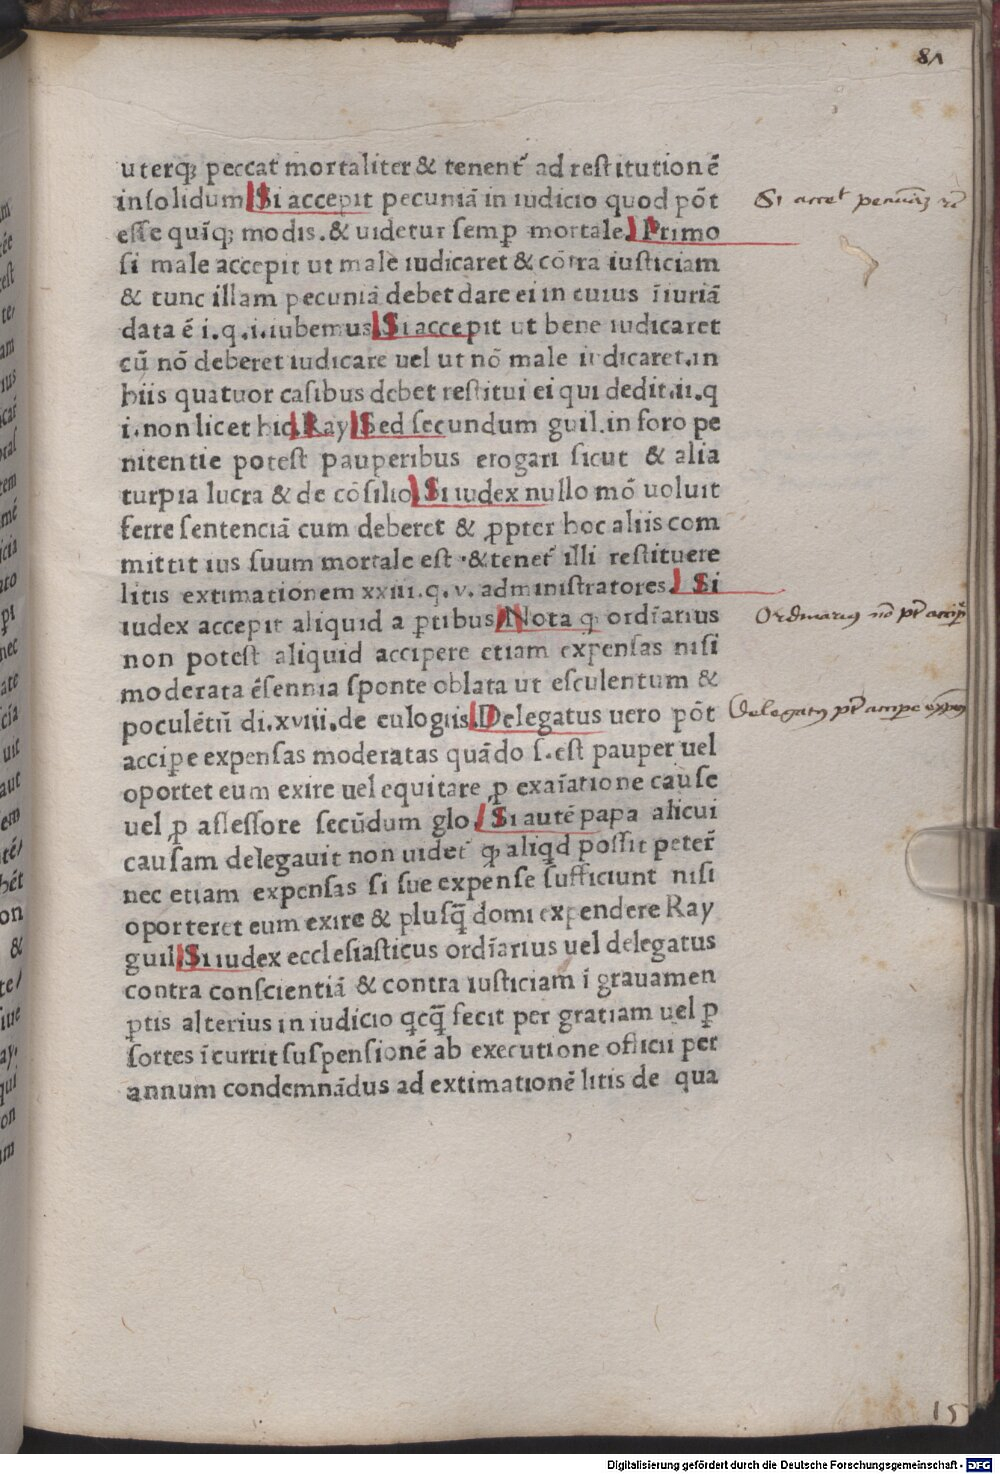 81
uterqȝ peccat mortaliter & tenent᷑ ad restitutionē
insolidum Si accepit pecuniā in iudicio quod pōt
esse quīqȝ modis. & uidetur semꝑ mortale. Primo
si male accepit ut male iudicaret & cōtra iusticiam
& tunc illam pecuniā debet dare ei in cuius īiuriā
data ē i.q.i.iubemus. Si accepit ut bene iudicaret
cū nō deberet iudicare uel ut nō male iudicaret.in
hiis quatuor casibus debet restitui ei qui dedit.ii.q
i.non licet hic. Ray. Sed secundum guil.in foro pe
nitentie potest pauperibus erogari sicut & alia
turpia lucra & de cōsilio. Si iudex nullo mō uoluit
ferre sentenciā cum deberet & ꝓpter hoc aliis com
mittit ius suum mortale est .& tenet᷑ illi restituere
litis extimationem xxiii.q.v.administratores. Si
iudex accepit aliquid a ꝑtibus. Nota ꝙ ordīarius
non potest aliquid accipere etiam expensas nisi
moderata ēsennia sponte oblata ut esculentum &
poculētū di.xviii.de eulogiis. Delegatus uero pōt
accipe expensas moderatas quādo s.est pauper uel
oportet eum exire uel equitare ꝑ exaīatione cause
uel ꝑ assessore secūdum glo. Si autē papa alicui
causam delegauit non uidet᷑ ꝙ aliqd possit peter̄
nec etiam expensas si sue expense sufficiunt nisi
oporteret eum exire & plusq̄ domi expendere Ray
guil. Si iudex ecclesiasticus ordīarius uel delegatus
contra conscientiā & contra iusticiam ī grauamen
ꝑtis alterius in iudicio qcq̄ fecit per gratiam uel ꝑ
sortes īcurrit suspensionē ab executione officii per
annum condemnādus ad extimationē litis de qua
Ordinarius nō pt accip
Delegatus pt accipe expens
15
Digitalisierung gefördert durch die Deutsche Forschungsgemeinschaft - DFG